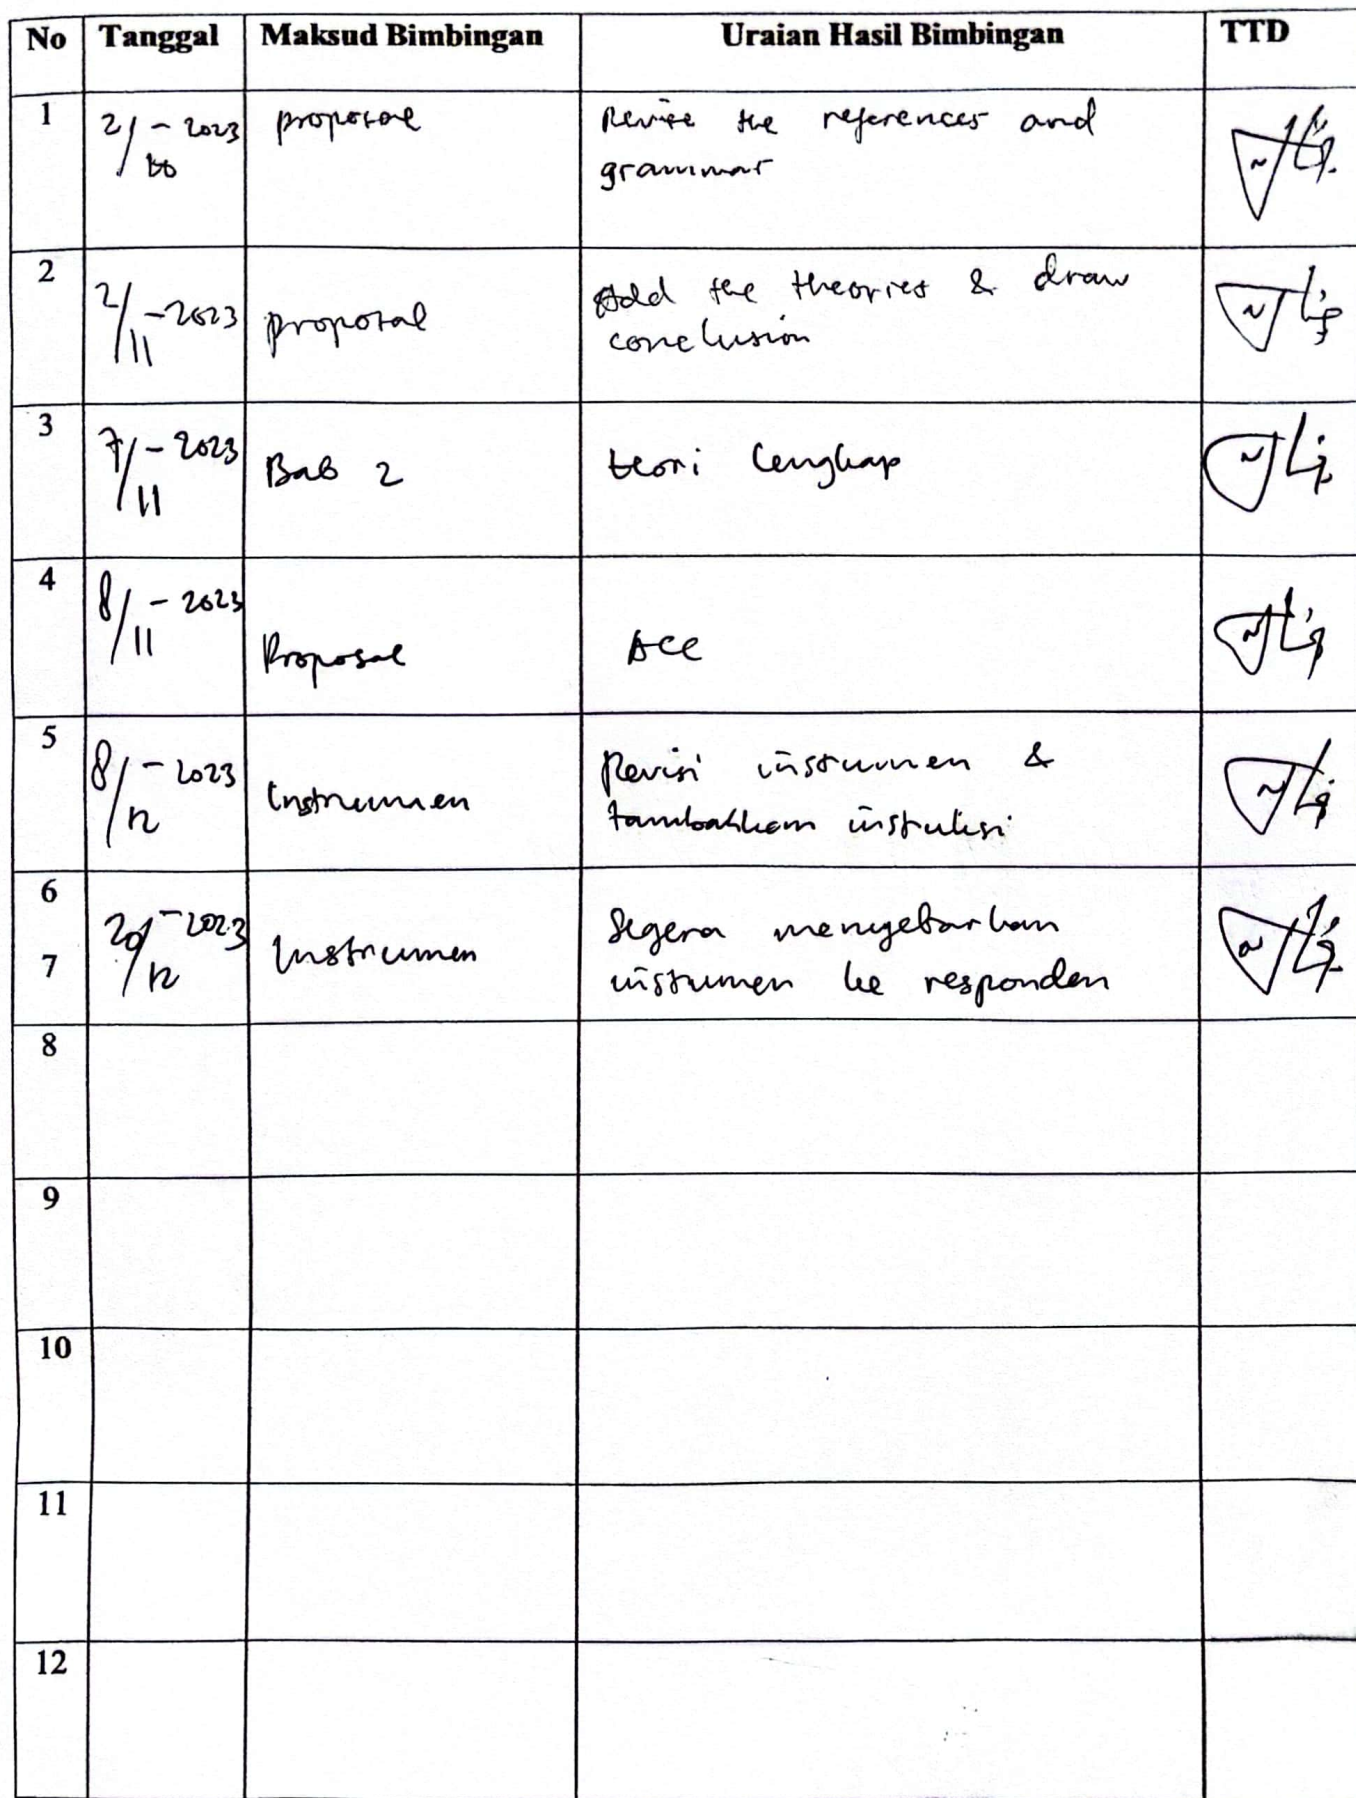 No Tanggal Maksud Bimbingan Uraian Hasil Bimbingan TTD
1 2/10-2023 proposal Revise the references and
grammar
2 2/11-2023 proposal Add the theories & draw
conclusion
3 7/11-2023 Bab 2 teori lengkap
4 8/11-2023 Proposal ACC
5 8/12-2023 Instrumen Revisi instrumen &
tambahkan instruksi
6 20/12-2023 Instrumen Segera menyebarkan
7 instrumen ke responden
8
9
10
11
12